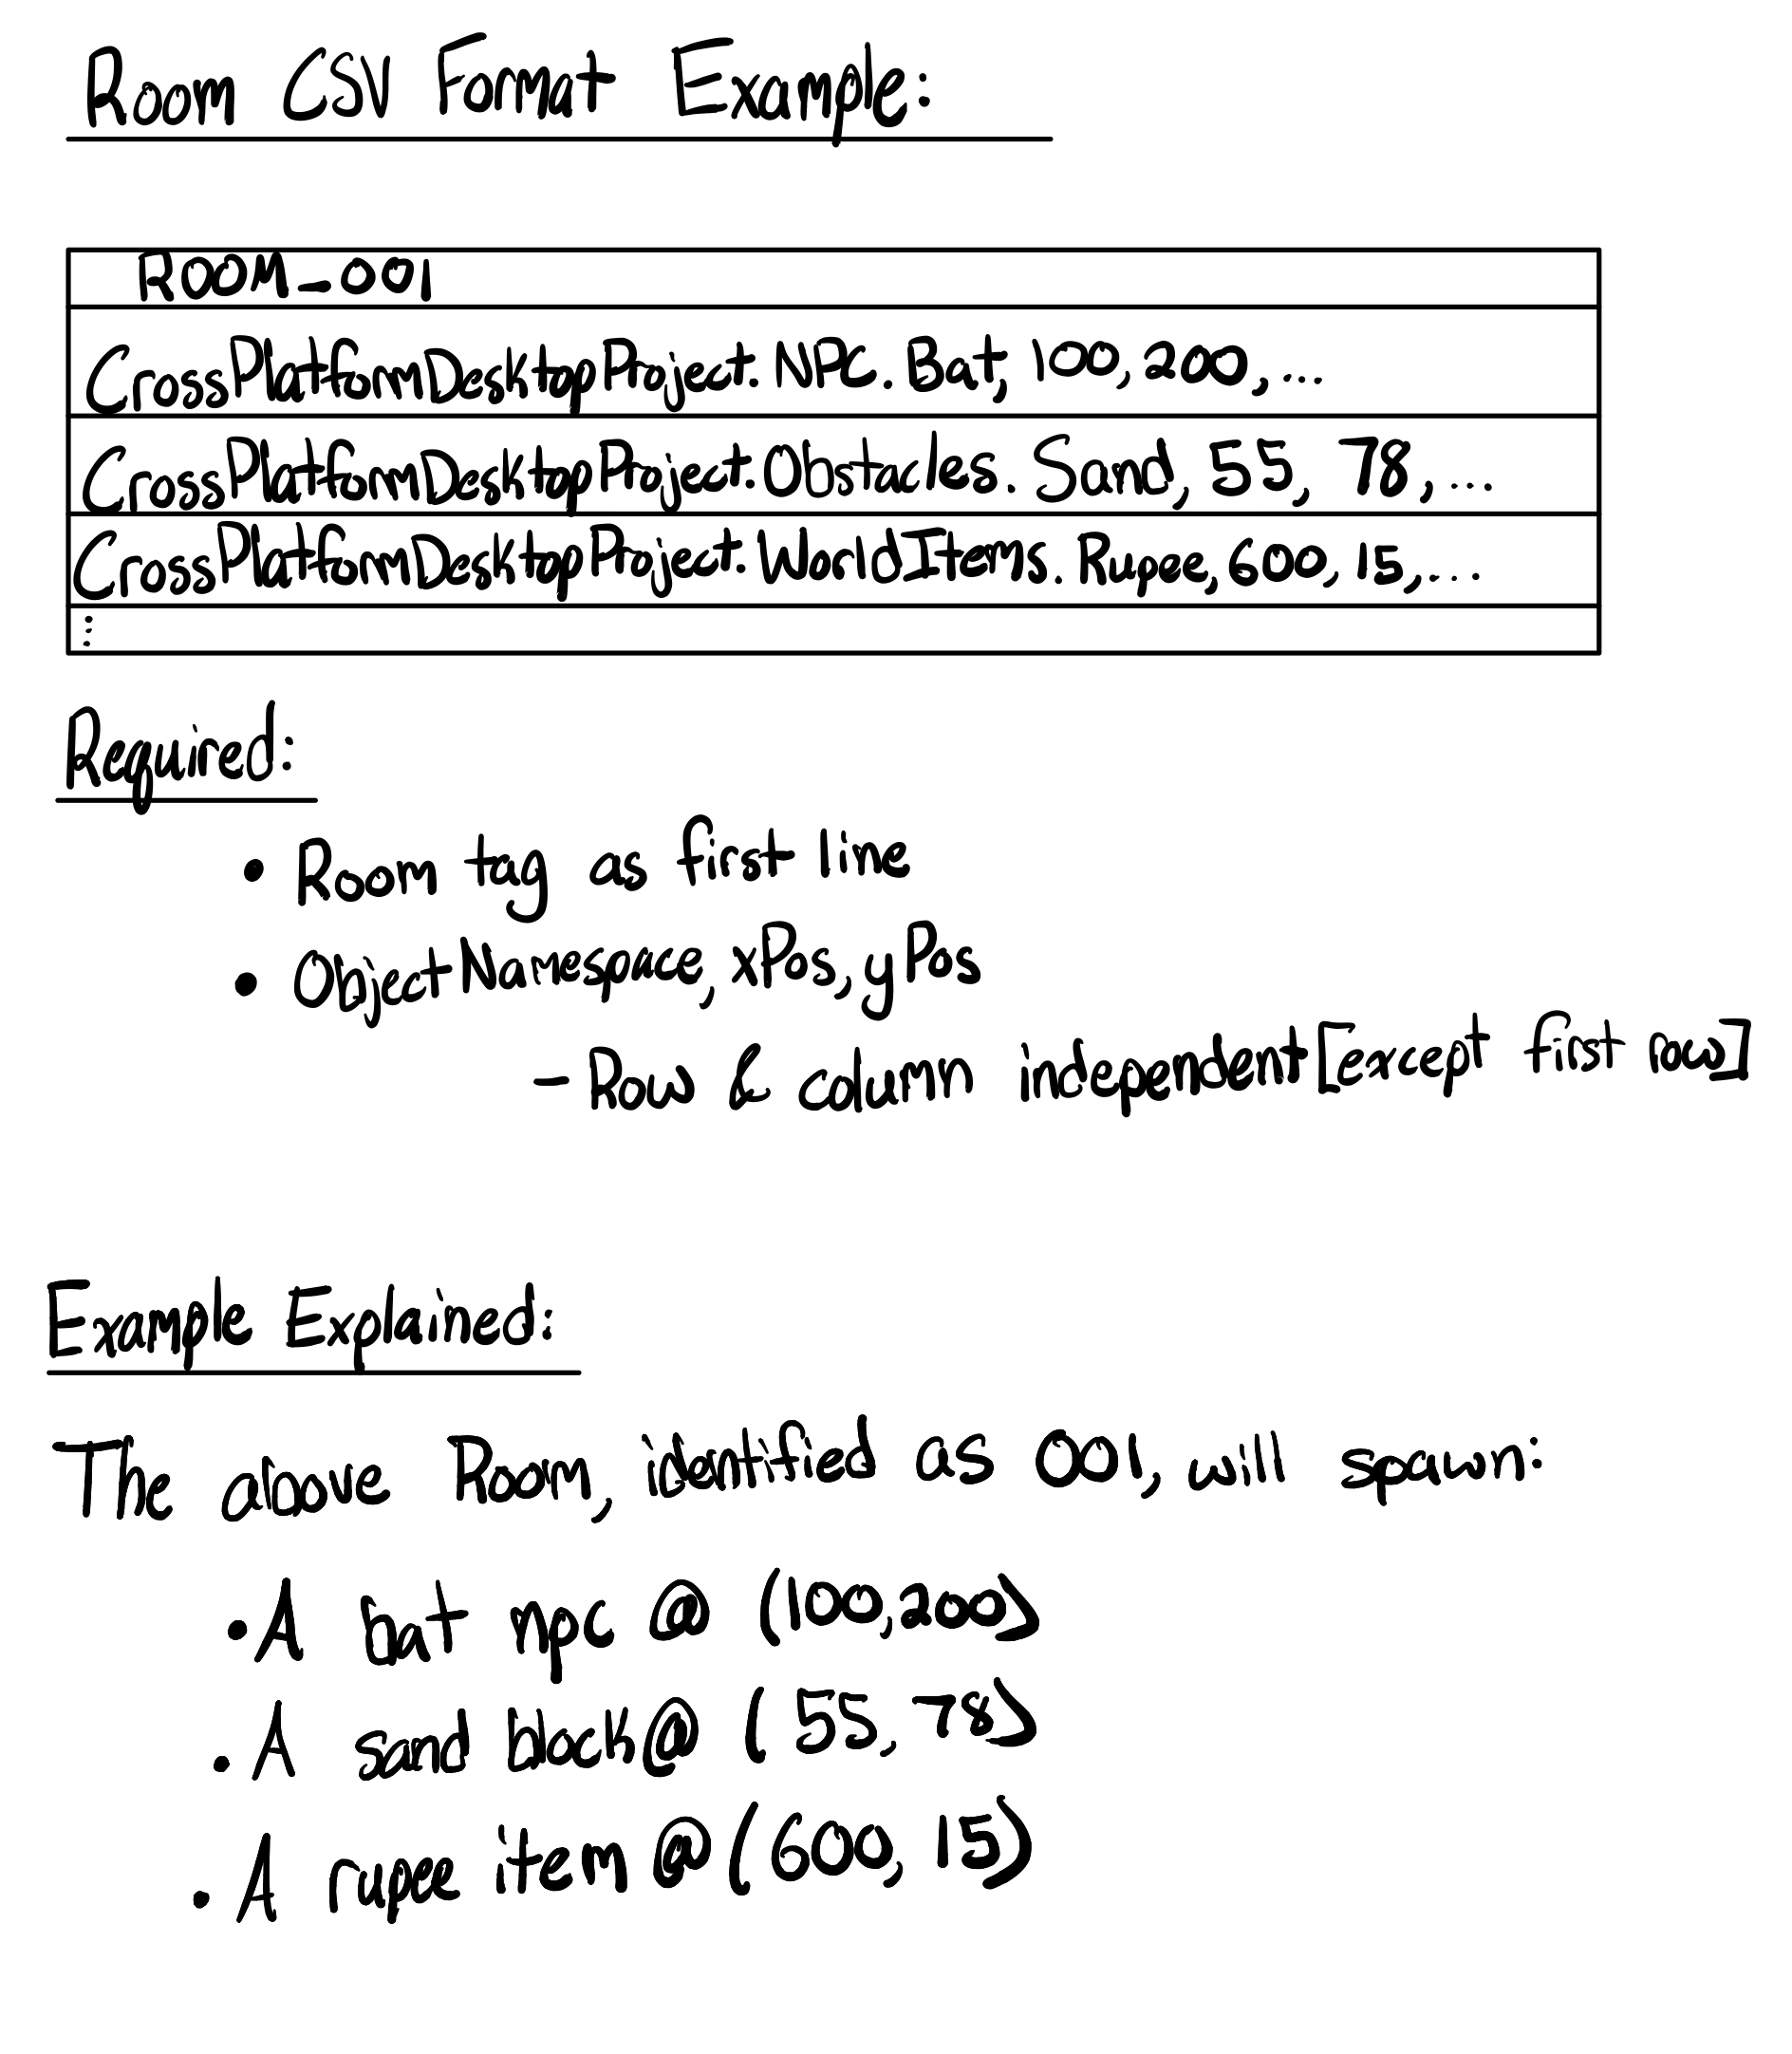 Room CSV Format Example:
ROOM_001
CrossPlatformDesktopProject.NPC.Bat, 100, 200, ...
CrossPlatformDesktopProject.Obstacles.Sand, 55, 78, ...
CrossPlatformDesktopProject.WorldItems.Rupee, 600, 15, ...
⋮
Required:
• Room tag as first line
• ObjectNamespace, xPos, yPos
- Row & column independent [except first row]
Example Explained:
The above Room, identified as 001, will spawn:
• A bat npc @ (100,200)
• A sand block @ (55, 78)
• A rupee item @ (600, 15)